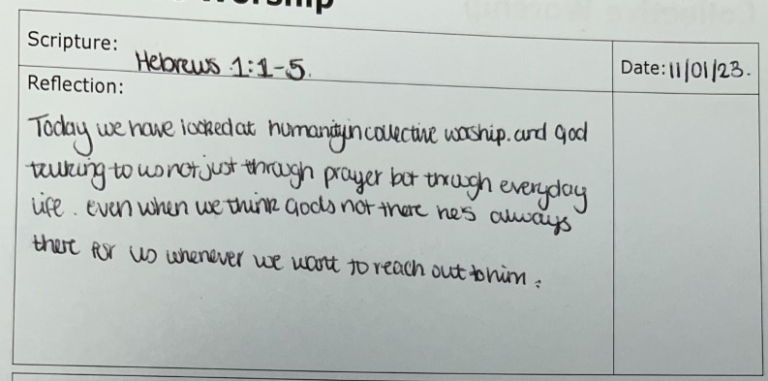 Worship
Scripture: Hebrews 1:1-5.
Date: 11/01/23.
Reflection:
Today we have looked at humanity in collective worship. and God
talking to us not just through prayer but through everyday
life. even when we think Gods not there he's always
there for us whenever we want to reach out to him.